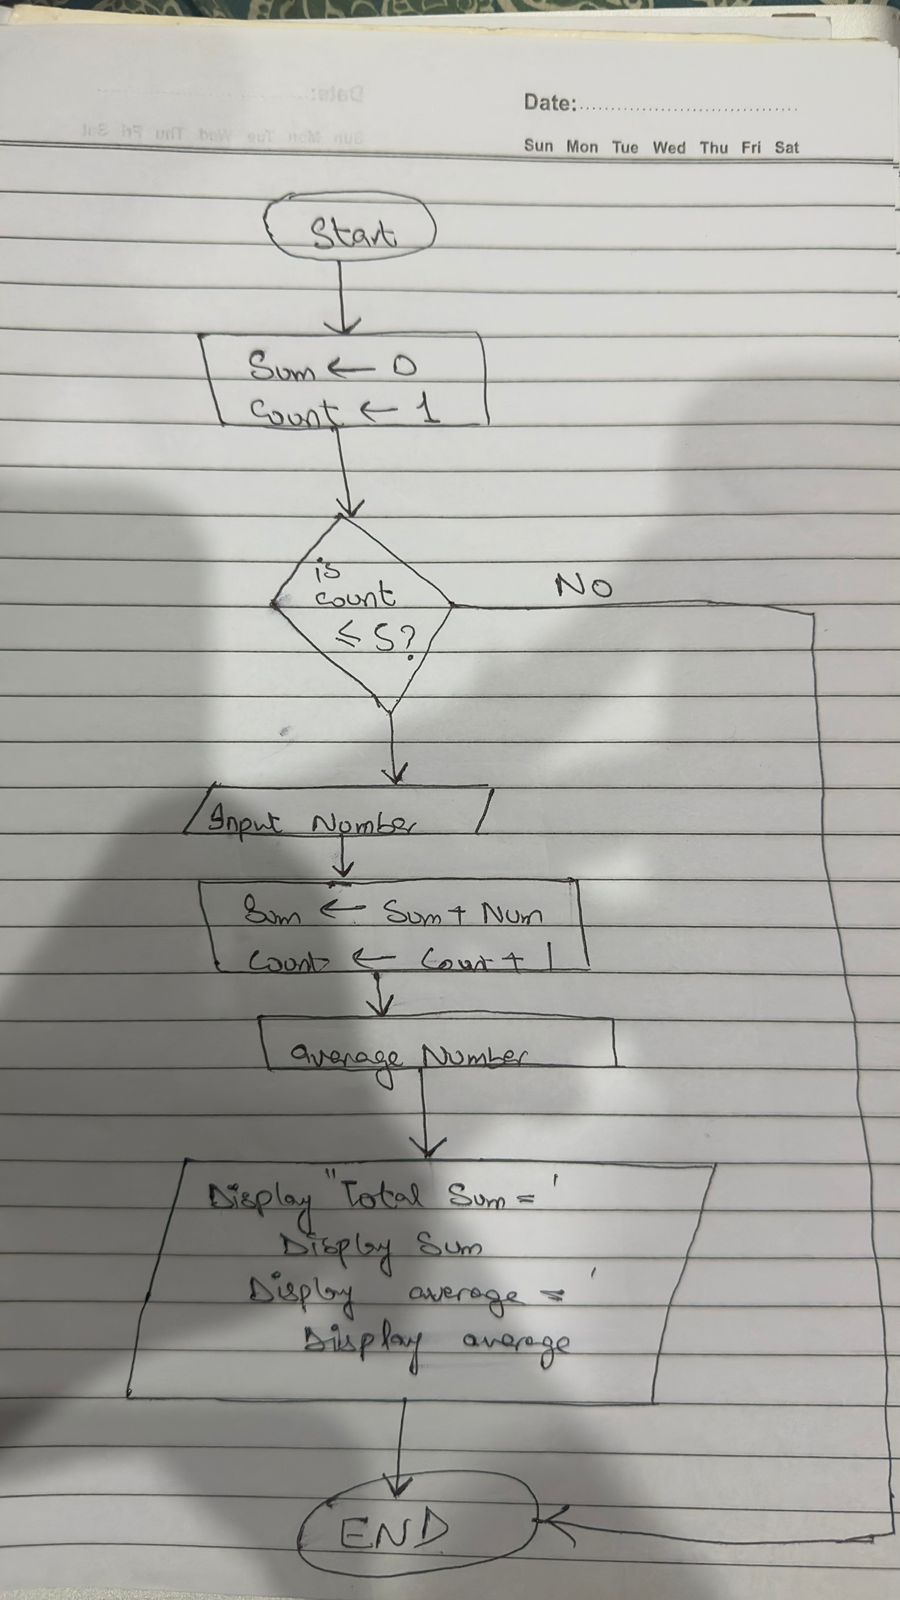 Date:
Sun Mon Tue Wed Thu Fri Sat
Start
Sum ← 0
Count ← 1
is
count
≤ 5?
No
Input Number
Sum ← Sum + Num
Count ← Count + 1
average Number
Display "Total Sum = '
Display Sum
Display average = '
Display average
END